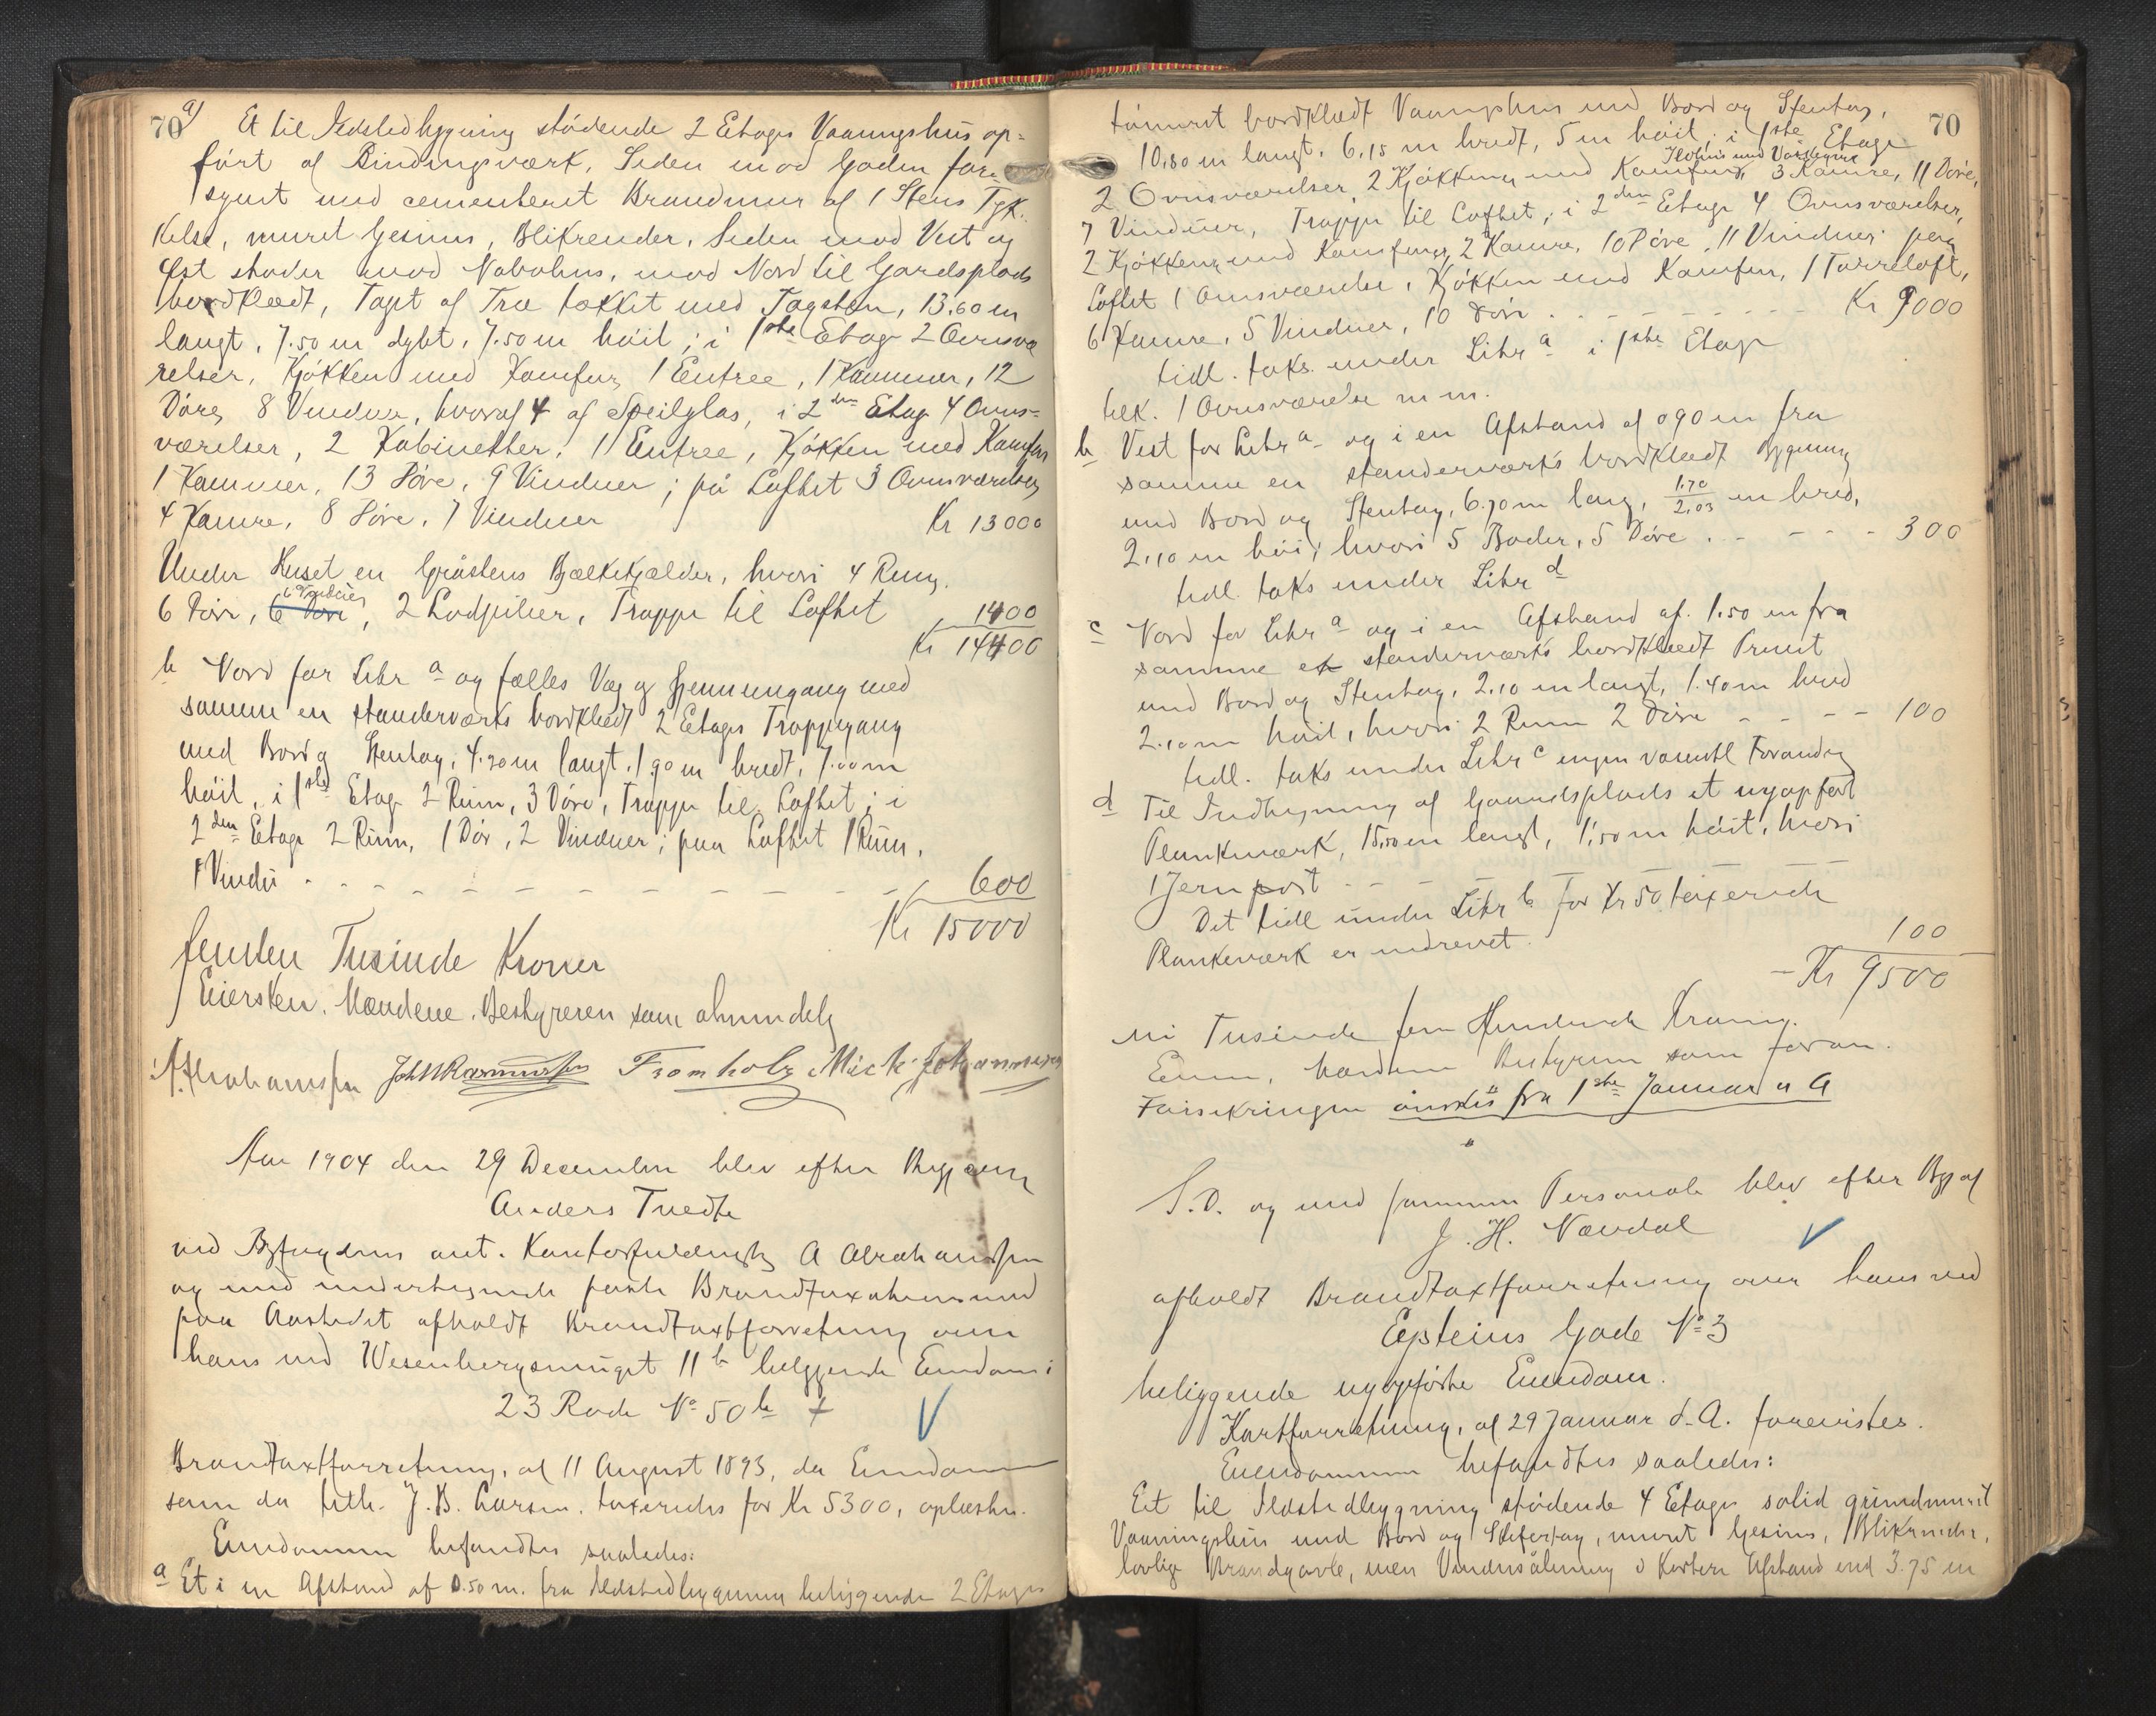 70
a) Et til Ildstedbygning stødende 2 Etages Vaaningshus op=
ført af Bindingsværk, Siden mod Gaden for=
synet med cementeret Brandmur af 1 Stens Tyk=
kelse, muret Gesims, Blikrender, Siden mod Vest og
Øst støder mod Nabohus, mod Nord til Gardsplads
bordklædt, Taget af Træ tækket med Tagsten, 13.60 m
langt, 7.50 m dybt, 7.50 m høit; i 1ste Etage 2 Ovnsvæ
relser, Kjøkken med Komfur, 1 Entree, 1 Kammer, 12
Døre, 8 Vinduer, hvoraf 4 af Speilglas, i 2den Etage 4 Ovns=
værelser, 2 Kabinetter, 1 Entree, Kjøkken med Komfur
1 Kammer, 13 Døre, 9 Vinduer; på Loftet 3 Ovnsværelser
4 Kamre, 8 Døre, 7 Vinduer Kr 13000
Under Huset en Gråstens Bjælkekjælder, hvori 4 Rum,
6 Vinduer
6 Døre, 6 Døre, 2 Lodpiller, Trappe til Loftet 1400
Kr 14400
b Nord for Litr a og fælles Væg og Gjennemgang med
samme en standerværks bordklædt 2 Etages Trappegang
med Bord og Stentag, 4.20 m langt, 1.90 m bredt, 7.00 m
høit, i 1ste Etage 2 Rum, 3 Døre, Trappe til Loftet; i
2den Etage 2 Rum, 1 Dør, 2 Vinduer; paa Loftet 1 Rum,
1 Vindu - - - - - - - 600
Kr 15000
femten Tusinde Kroner
Eiersken, Mændene, Bestyreren som almindelig
A. Abrahamsen Joh. N. Rasmussen Fromholz Mich. Johannessen
Aar 1904 den 29 December blev efter Begjæring af
Anders Tvedte
ved Byfogdens aut. Kontorfuldmægtig A Abrahamsen
og med undertegnede faste Brandtaxationsmænd
paa Aastedet afholdt Brandtaxtforretning over
hans ved Wesenbergsmuget 11b beliggende Eiendom i
23 Rode No 50b
Brandtaxtforretning, af 11 August 1893, da Eiendommen
som da tilh. J. B. Larsen, taxeredes for Kr 5300, oplæstes.
Eiendommen befandtes saaledes:
a Et i en Afstand af 0.50 m. fra Ildstedbygning beliggende 2 Etages
70
tømret bordklædt Vaaningshus med Bord og Stentag,
10.80 m langt, 6.15 m bredt, 5 m høit; i 1ste Etage
2 Ovnsværelser, 2 Kjøkkener med Komfurer, 3 Kamre, 11 Døre,
7 Vinduer, Trappe til Loftet; i 2den Etage 4 Ovnsværelser,
2 Kjøkkener med Komfurer, 2 Kamre, 10 Døre, 11 Vinduer; paa
Loftet 1 Ovnsværelse, Kjøkken med Komfur, 1 Tørreloft,
6 Kamre, 5 Vinduer, 10 Døre - - - - - Kr 9000
tidl. taks. under Litr a i 1ste Etage
tilk. 1 Ovnsværelse m m.
b Vest for Litr a og i en Afstand af 0 90 m fra
samme en standerværks bordklædt Bygning
med Bord og Stentag, 6.70 m lang, 1.70/2.03 m bred,
2.10 m høi, hvori 5 Boder, 5 Døre - - - - 300
tidl. taks under Litr d
c Nord for Litr a og i en Afstand af 1.50 m fra
samme et standerværks bordklædt Privet
med Bord og Stentag, 2.10 m langt, 1.40 m bred
2.10 m høit, hvori 2 Rum 2 Døre - - - - 100
tidl. taks under Litr c ingen væsentl Forandrg
d Til Indhegning af Gaardsplads et nyopført
Plankeværk, 15.50 m langt, 1.50 m høit, hvori
1 Jernport - - - - -
Det tidl under Litr b for Kr 50 taxerede
Plankeværk er nedrevet. 100
Kr 9500
ni Tusinde fem Hundrede Kroner.
Eieren, Mændene Bestyreren som foran.
Forsikringen ønskes fra 1ste Januar n A
S. D. og med samme Personale blev efter Begj af
J. H. Nævdal
afholdt Brandtaxtforretning over hans ved
Epsteins Gade No 3
beliggende nyopførte Eiendom.
Kartforretning, af 29 Januar d. A. forevistes.
Eiendommen befandtes saaledes:
Et til Ildstedbygning stødende 4 Etages solid grundmuret
Vaaningshus med Bord og Skifertag, muret Gesims, Blikrender,
lovlige Brandgavle, men Vinduesåbning i kortere Afstand end 3.75 m